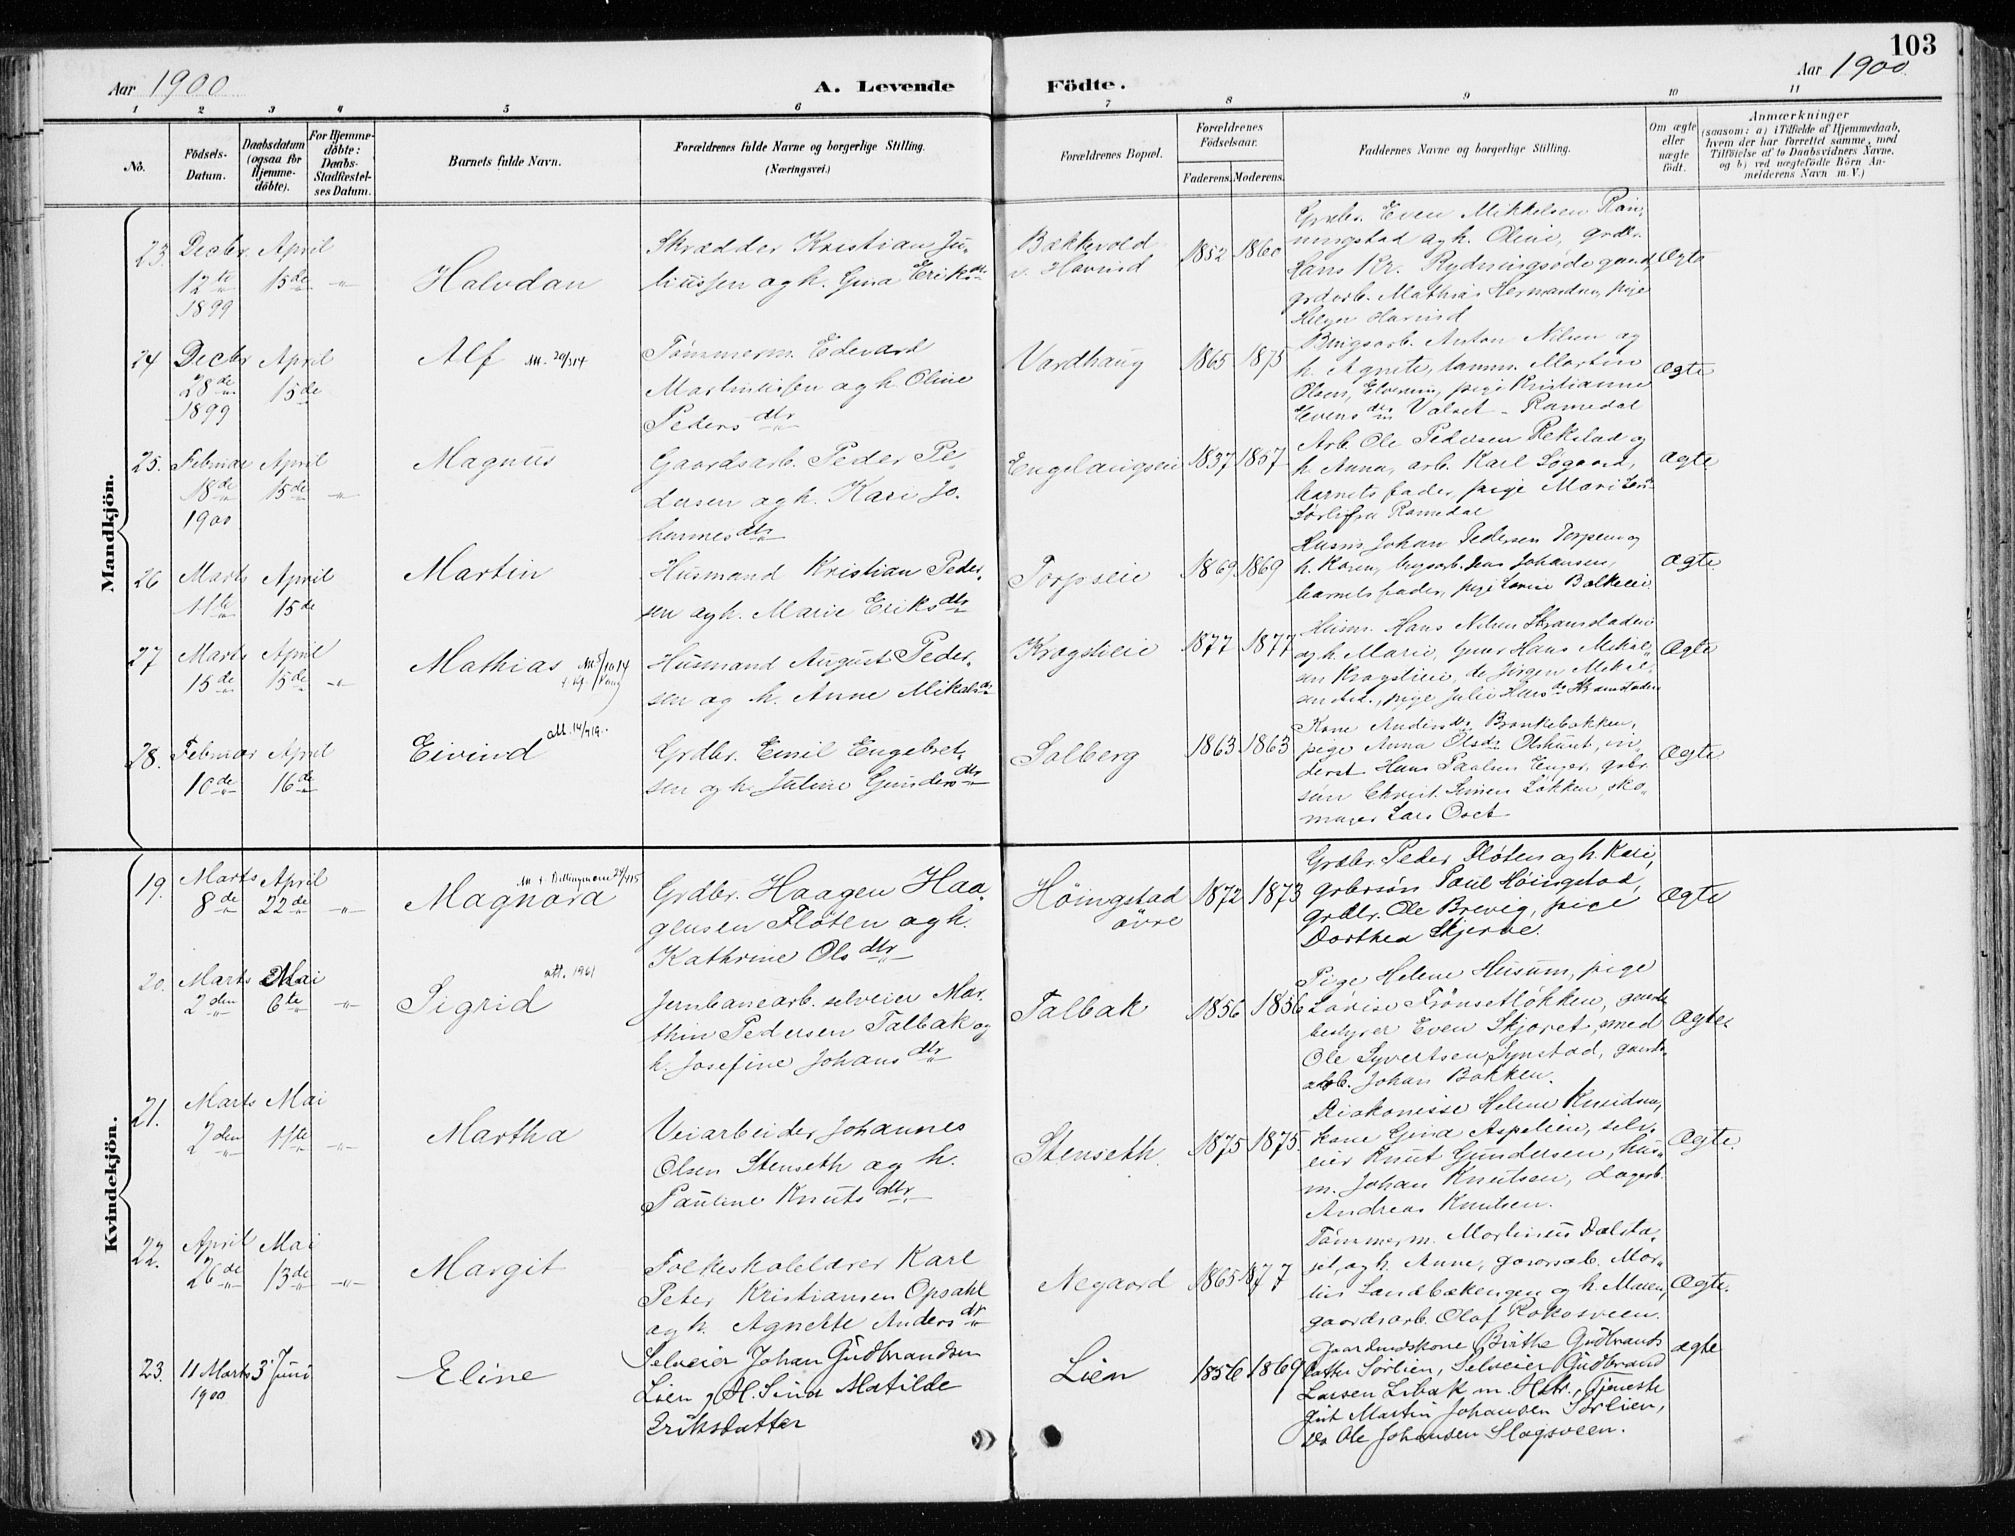 103
Aar 1900
A. Levende Födte.
Aar 1900.
1 2 3 4 5 6 7 8 9 10 11
No.
Födsels-Datum.
Daabsdatum (ogsaa for Hjemmedöbte).
For Hjemmedöbte: Daabs-Stadfæstelses Datum.
Barnets fulde Navn.
Forældrenes fulde Navne og borgerlige Stilling.
(Næringsvei.)
Forældrenes Bopæl.
Forældrenes Födselsaar.
Faderens. Moderens.
Faddernes Navne og borgerlige Stilling.
Om ægte eller uægte födt.
Anmærkninger
(saasom: a) i Tilfælde af Hjemmedaab,
hvem der har forrettet samme, med
Tilföielse af to Daabsvidners Navne,
og b) ved uægtefödte Börn Anmelderens Navn m. V.)
Mandkjön.
23. Decbr 12te 1899
April 15de "
Halvdan
Skrædder Kristian Ju-
liussen og h. Gina Eriksdtr
Bækkevold
u. Havind
1852 1860
Grdbr. Even Mikkelsen Ron-
ningstad og h. Oline, grdbr.
Hans Kr. Rydningsøde
grdarb. Mathias
Helger Havind
Ægte
24 Decbr 28de 1899
April 15de
Alf
Tømmerm. Edevard
Martiniussen og h. Oline
Pedersdtr
Vardhaug
1865 1875
Anton Nilsen og
h. Agnete, tømm. Martin
Olsen, pige Kristianne
Evensdtr Valset - Romedal
Ægte
25. Februar 18de 1900
April 15de "
Magnus
Gaardsarb. Peder Pe-
dersen og h. Kari Jo-
hannesdtr
Engelaugseie
1837 1857
Arb. Ole Pedersen Rekstad og
h. Anna, arb. Karl Søgaard,
barnets fader, pige Mari
Sørli fra Romedal
Ægte
26 Marts 11te
April 15de
Martin
Husmand Kristian Peder-
sen og h. Marie Eriksdtr
Torpseie
1869 1869
Husm. Johan Pedersen Torpseie og
h. Karen, Jens Johansen,
barnets fader, pige Lovise Balkeeie
Ægte.
27 Marts 15de
April 15de "
Mathias
Husmand August Peder-
sen og h. Anne Mikelsdtr
Kragslieie
1877 1877
Husm. Hans Nilsen Skramstadeie
og h. Marie, Hans Mikal-
sen Kragslieie, do Jørgen Mikal-
sen do., pige Julie Hansdr Skramstadeie
Ægte
28. Februar 10de
April 16de
Eivind
att. 14/719.
Grdbr. Emil Engebret-
sen og h. Juline Gundersdtr
Solberg
1863 1863
Kone Andersdtr Bronkebakken,
pige Anna Olsdtr Olshuset, in-
derst Hans Paulsen Enger, grbr.
søn Christ. Simen Løkken, sko-
mager Lars Oset
Ægte
Kvindekjön.
19. Marts 8de
April 22de "
Magnora
Grdbr. Haagen Haa-
gensen Fløten og h.
Kathrine Olsdtr
Høingstad
øvre
1872 1873
Grdbr. Peder Fløten og h. Kari,
grbrsøn Paul Høingstad,
grdbr. Ole Brevig, pige
Dorthea Skjerve.
Ægte
20. Marts 2den
Mai 6te "
Sigrid
att. 1961
Jernbanearb. selveier Mar-
thin Pedersen Talbak og
h. Josefine Johansdtr
Talbak
1856 1856
Pige Helene Husum, pige
Lovise Frönsetløkken, gaards-
bestyrer Even Skjøret, smed
Ole Syvertsen Synstad, gaards-
arb. Johan Bakken.
Ægte
21. Marts 2den
Mai
Martha
Veiarbeider Johannes
Olsen Stenseth og h.
Pauline Knutsdtr
Stenseth.
1875 1875.
Diakonisse Helene Knudsen,
kone Gina Aspelien, selv-
eier Knut Gundersen, hus-
m. Johan Knutsen, Lagerb.
Andreas Knutsen.
Ægte.
22. April 26de
Mai 13de "
Margit
Folkeskolelærer Karl
Peter Kristiansen Opsahl
og h. Agnethe Andersdtr
Negaard
1865 1877
Tømmerm. Martinius Dælsta-
set, og h. Anne, gaardsarb. Mar-
tin Sandbækengen og h. Maren,
gaardsarb. Olaf Rokosveen.
Ægte.
23. 11 Marts 1900
3 Juni
Eline
Selveier Johan Gudbrandsen
Lien og H. Sina Matilde
Eriksdatter
Lien
1856 1869
Gaardmdskone Birthe Gudbrands
datter Sørlien, Selveier Gudbrand
Larsen Libak m. Hstr., Tjeneste
gut Martin Johansen Sørlien,
do Ole Johansen Slagsveen.
ægte